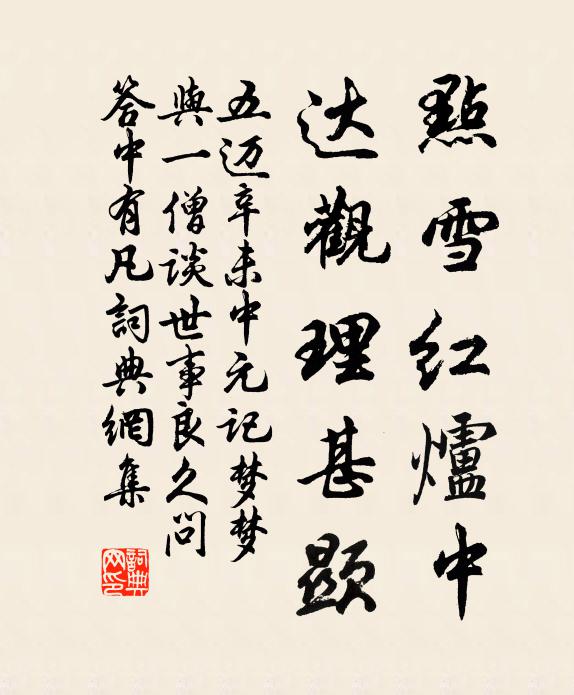 點雪红爐中
达觀理甚顯
五迈辛未中元记梦梦
與一僧谈世事良久问
答中有凡詞典網集
詞典
网印